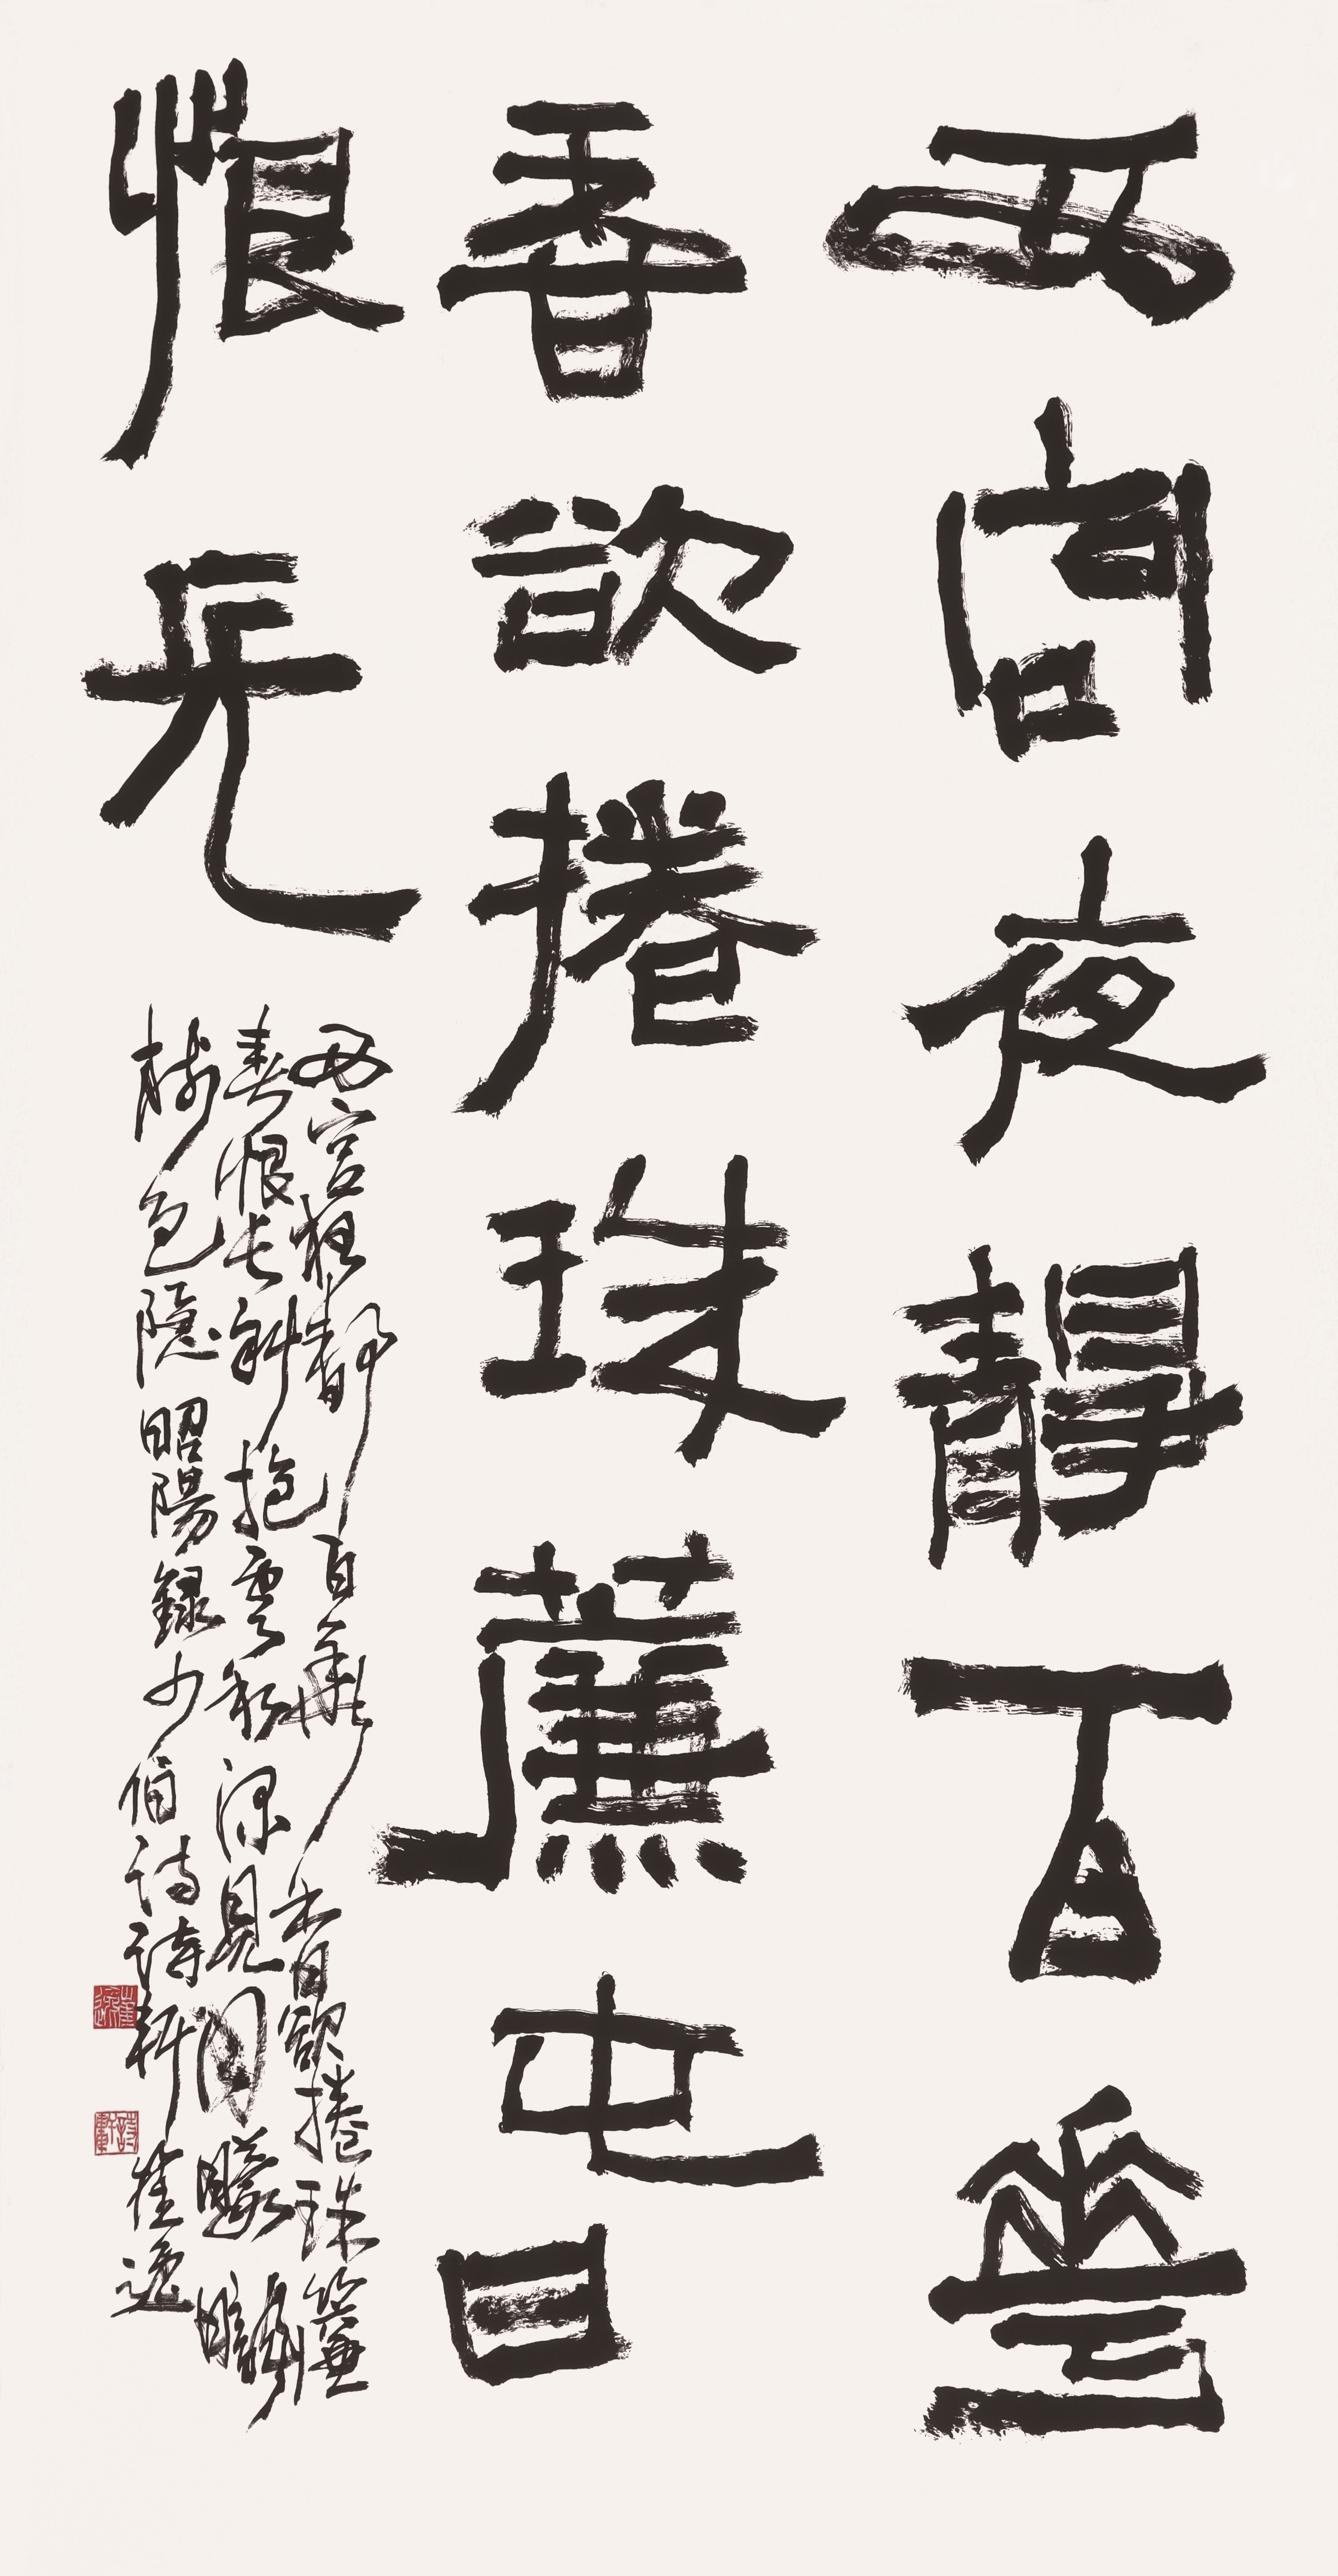 西宮夜靜百華
香欲捲珠簾春
恨長
西宮夜靜百華香欲捲珠簾
春恨長斜抱雲和深見月朦朧
樹色隱昭陽錄少伯詩詩軒崔逸
崔逸
詩軒